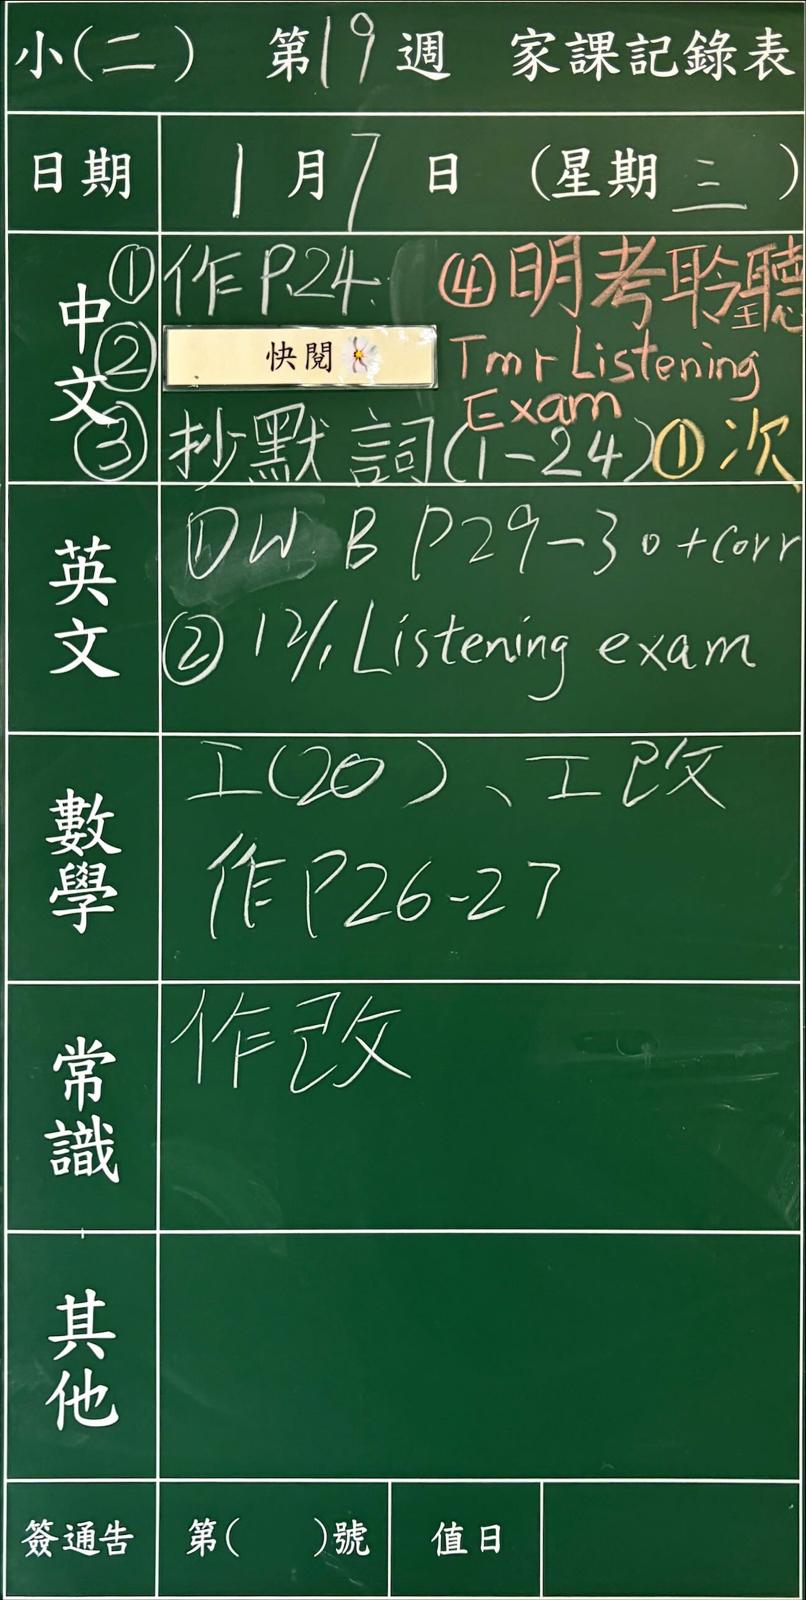 小(二) 第19週 家課記錄表
日期 1月7日 (星期三)
中文
① 作P.24.
② 快閱
③ 抄默詞(1-24)①次
④明考聆聽
Tmr Listening
Exam
英文
① W.B P29-30+corr
② 12/1 Listening exam
數學
工(20)、工改
作P26-27
常識
作改
其他
簽通告 第( )號 值日